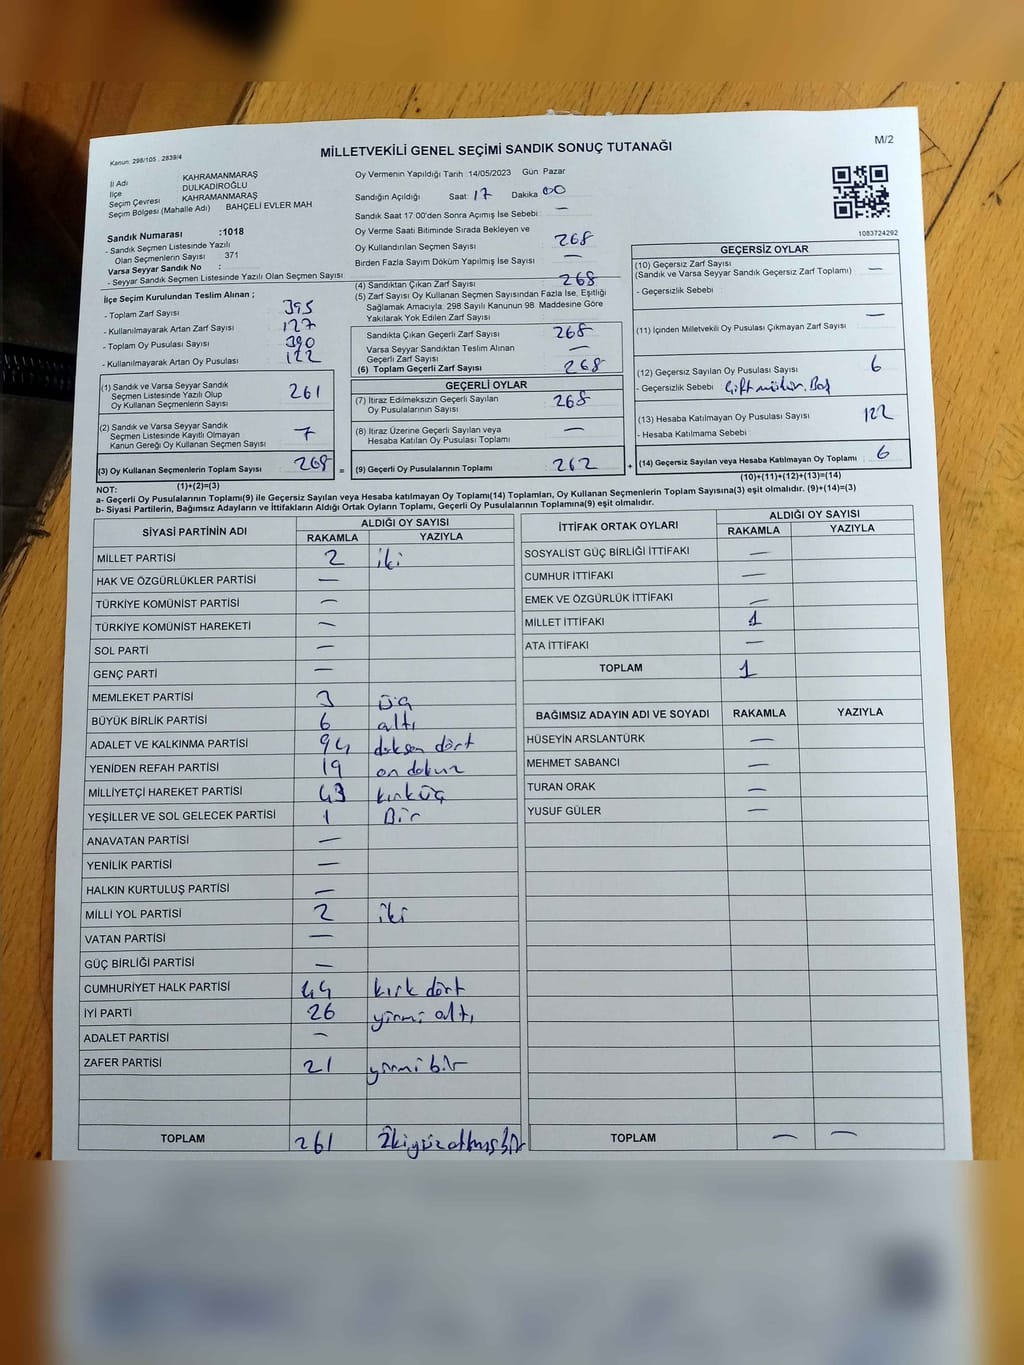 M/2
Kanun: 298/105 , 2839/4
MİLLETVEKİLİ GENEL SEÇİMİ SANDIK SONUÇ TUTANAĞI
İl Adı KAHRAMANMARAŞ
İlçe DULKADİROĞLU
Seçim Çevresi : KAHRAMANMARAŞ
Seçim Bölgesi (Mahalle Adı) BAHÇELİ EVLER MAH
Sandık Numarası :1018
- Sandık Seçmen Listesinde Yazılı
Olan Seçmenlerin Sayısı 371
Varsa Seyyar Sandık No :
- Seyyar Sandık Seçmen Listesinde Yazılı Olan Seçmen Sayısı
İlçe Seçim Kurulundan Teslim Alınan ;
- Toplam Zarf Sayısı 395
- Kullanılmayarak Artan Zarf Sayısı 127
- Toplam Oy Pusulası Sayısı 390
- Kullanılmayarak Artan Oy Pusulası 122
(1) Sandık ve Varsa Seyyar Sandık
Seçmen Listesinde Yazılı Olup
Oy Kullanan Seçmenlerin Sayısı 261
(2) Sandık ve Varsa Seyyar Sandık
Seçmen Listesinde Kayıtlı Olmayan
Kanun Gereği Oy Kullanan Seçmen Sayısı 7
(3) Oy Kullanan Seçmenlerin Toplam Sayısı 268 =
(1)+(2)=(3)
Oy Vermenin Yapıldığı Tarih :14/05/2023 Gün: Pazar
Sandığın Açıldığı Saat: 17 Dakika 00
Sandık Saat 17 00'den Sonra Açımış İse Sebebi : —
Oy Verme Saati Bitiminde Sırada Bekleyen ve
Oy Kullandırılan Seçmen Sayısı 268
Birden Fazla Sayım Döküm Yapılmış İse Sayısı —
(4) Sandıktan Çıkan Zarf Sayısı 268
(5) Zarf Sayısı Oy Kullanan Seçmen Sayısından Fazla İse, Eşitliği
Sağlamak Amacıyla: 298 Sayılı Kanunun 98. Maddesine Göre
Yakılarak Yok Edilen Zarf Sayısı :
Sandıkta Çıkan Geçerli Zarf Sayısı 268
Varsa Seyyar Sandıktan Teslim Alınan
Geçerli Zarf Sayısı —
(6) Toplam Geçerli Zarf Sayısı 268
GEÇERLİ OYLAR
(7) İtiraz Edilmeksizin Geçerli Sayılan
Oy Pusulalarının Sayısı 268
(8) İtiraz Üzerine Geçerli Sayılan veya
Hesaba Katılan Oy Pusulası Toplamı —
(9) Geçerli Oy Pusulalarının Toplamı : 262 +
1083724292
GEÇERSİZ OYLAR
(10) Geçersiz Zarf Sayısı
(Sandık ve Varsa Seyyar Sandık Geçersiz Zarf Toplamı) —
- Geçersizlik Sebebi :
(11) İçinden Milletvekili Oy Pusulası Çıkmayan Zarf Sayısı —
(12) Geçersiz Sayılan Oy Pusulası Sayısı 6
- Geçersizlik Sebebi Çift mühür, Boş
(13) Hesaba Katılmayan Oy Pusulası Sayısı 122
- Hesaba Katılmama Sebebi :
(14) Geçersiz Sayılan veya Hesaba Katılmayan Oy Toplamı : 6
(10)+(11)+(12)+(13)=(14)
NOT:
a- Geçerli Oy Pusulalarının Toplamı(9) ile Geçersiz Sayılan veya Hesaba katılmayan Oy Toplamı(14) Toplamları, Oy Kullanan Seçmenlerin Toplam Sayısına(3) eşit olmalıdır. (9)+(14)=(3)
b- Siyasi Partilerin, Bağımsız Adayların ve İttifakların Aldığı Ortak Oyların Toplamı, Geçerli Oy Pusulalarının Toplamına(9) eşit olmalıdır.
SİYASİ PARTİNİN ADI ALDIĞI OY SAYISI
RAKAMLA YAZIYLA
MİLLET PARTİSİ 2 iki
HAK VE ÖZGÜRLÜKLER PARTİSİ —
TÜRKİYE KOMÜNİST PARTİSİ —
TÜRKİYE KOMÜNİST HAREKETİ —
SOL PARTİ —
GENÇ PARTİ —
MEMLEKET PARTİSİ 3 üç
BÜYÜK BİRLİK PARTİSİ 6 altı
ADALET VE KALKINMA PARTİSİ 94 doksan dört
YENİDEN REFAH PARTİSİ 19 on dokuz
MİLLİYETÇİ HAREKET PARTİSİ 43 kırküç
YEŞİLLER VE SOL GELECEK PARTİSİ 1 Bir
ANAVATAN PARTİSİ —
YENİLİK PARTİSİ —
HALKIN KURTULUŞ PARTİSİ —
MİLLİ YOL PARTİSİ 2 iki
VATAN PARTİSİ —
GÜÇ BİRLİĞİ PARTİSİ —
CUMHURİYET HALK PARTİSİ 44 kırk dört
İYİ PARTİ 26 yirmi altı
ADALET PARTİSİ —
ZAFER PARTİSİ 21 yirmi bir
TOPLAM 261 İkiyüzaltmışbir
İTTİFAK ORTAK OYLARI ALDIĞI OY SAYISI
RAKAMLA YAZIYLA
SOSYALİST GÜÇ BİRLİĞİ İTTİFAKI —
CUMHUR İTTİFAKI —
EMEK VE ÖZGÜRLÜK İTTİFAKI —
MİLLET İTTİFAKI 1
ATA İTTİFAKI —
TOPLAM 1
BAĞIMSIZ ADAYIN ADI VE SOYADI RAKAMLA YAZIYLA
HÜSEYİN ARSLANTÜRK —
MEHMET SABANCI —
TURAN ORAK —
YUSUF GÜLER —
TOPLAM — —